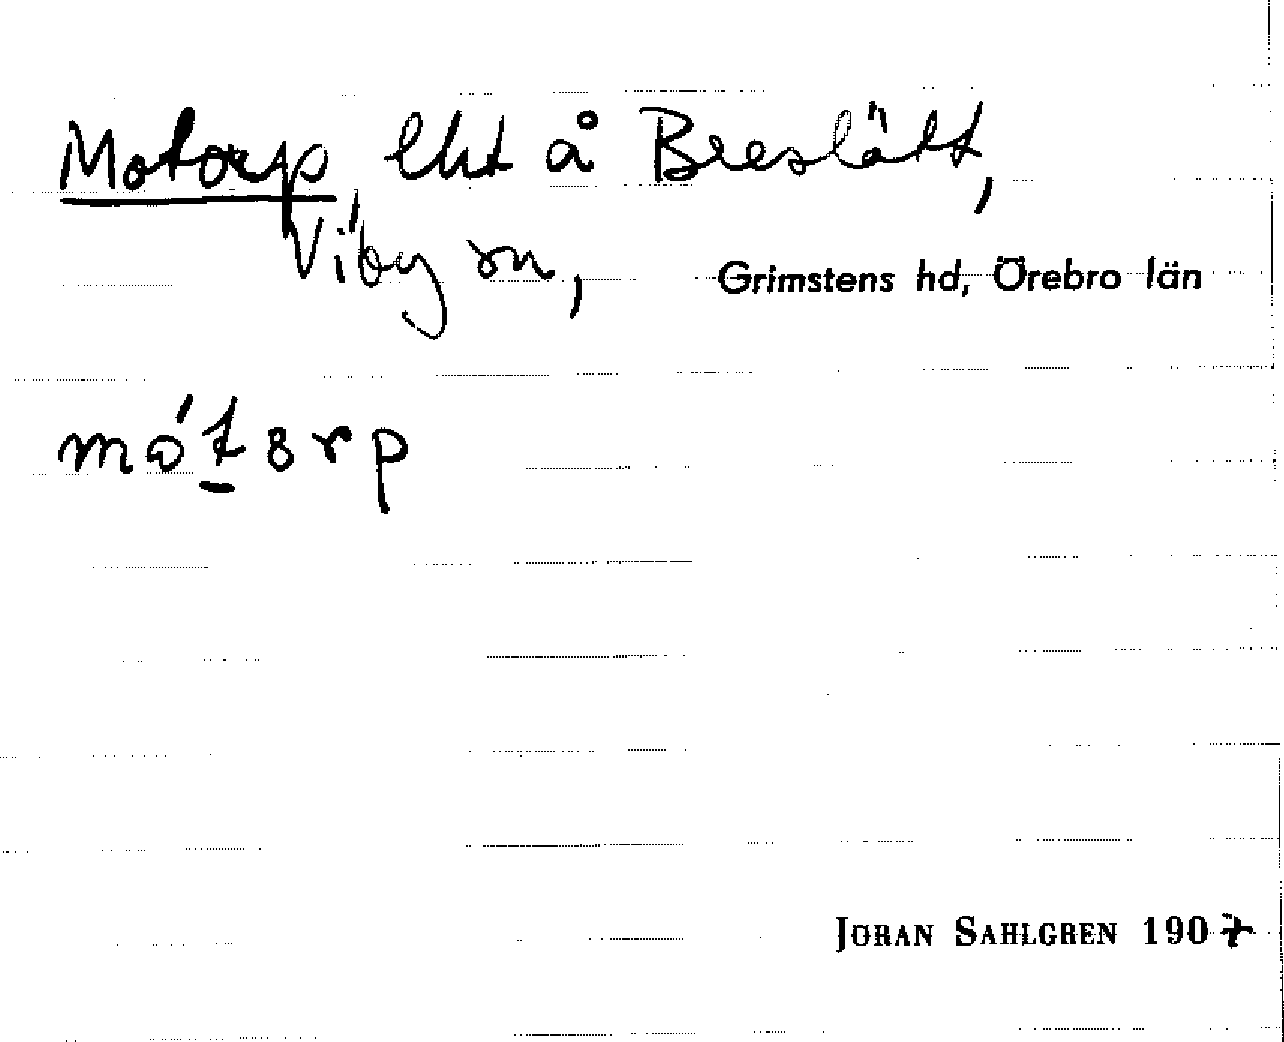 Motorp lht å Breslätt,
Viby sn, Grimstens hd, Örebro län
mót̠8rp
JÖRAN SAHLGREN 1907